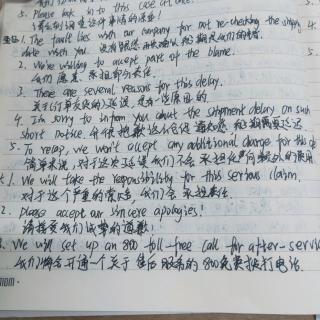 5. Please look in to this case at once.
请立刻调查这件事情的
1. The fault lies with our company for not re-checking the shipping
date with you. 没有跟您再次确认船期是我们的
2. We're willing to accept part of the blame.
我们愿意承担部分责任
3. There are several reasons for this delay.
关于订单交货的延误,是有一些原因的
4. I'm sorry to inform you about the shipment delay on such
short notice. 很抱歉这么仓促通知您船期延迟
5. To recap, we won't accept any additional charge for this
简单来说,对于这次延误我们不会承担任何额外的费用
1. We will take the responsibility for this serious claim.
对于这个严重的索赔,我们会承担责任
2. please accept our sincere apologies!
请接受我们诚挚的道歉!
3. We will set up an 800 toll-free call for after-servi
我们将会开通一个关于售后服务的800免费拨打电话.